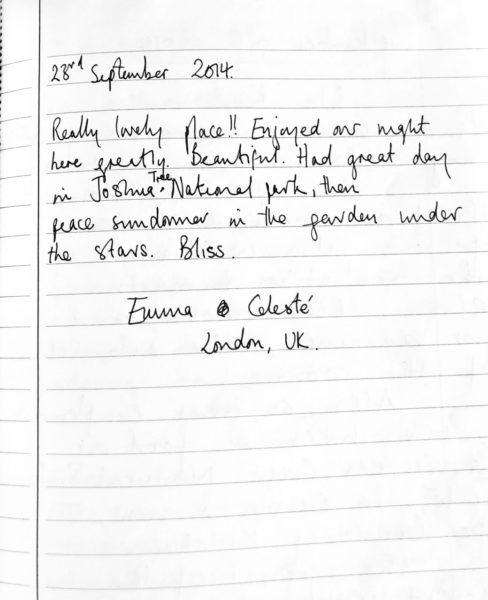 23rd September 2014.
Really lovely place!! Enjoyed our night
here greatly. Beautiful. Had great day
in Joshua Tree National park, then
peace sundowner in the garden under
the stars. Bliss.
Emma & Celesté
London, UK.